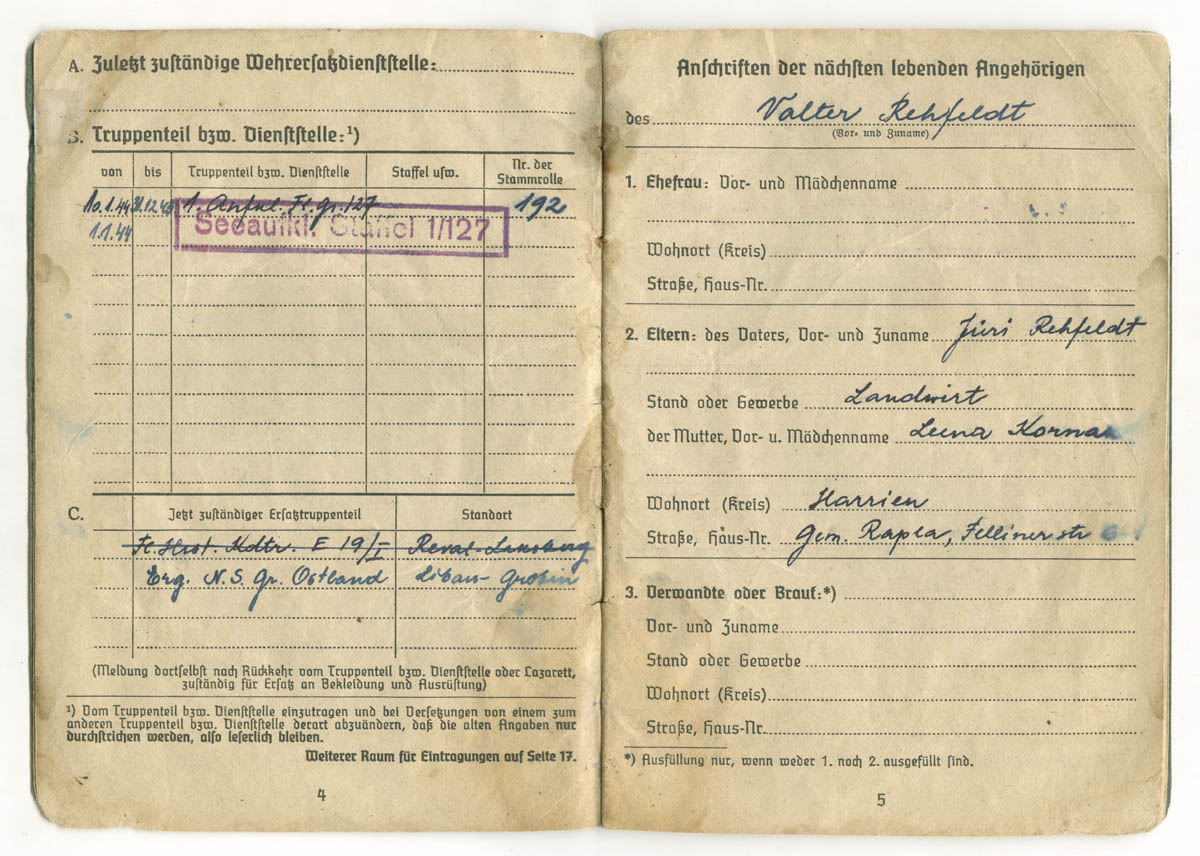 A. Zuletzt zuständige Wehrersatzdienststelle:
B. Truppenteil bzw. Dienststelle:¹)
von bis Truppenteil bzw. Dienststelle Staffel usw. Nr. der Stammrolle
1. Fl. gr. 127 192
1.1.44
Seeaufkl. Staffel 1/127
C. Jetzt zuständiger Ersatztruppenteil Standort
Fl. Horst. Kdtr. E 19/I Reval-Laksberg
Erg. N.S. Gr. Ostland Libau-Grobin
(Meldung dortselbst nach Rückkehr vom Truppenteil bzw. Dienststelle oder Lazarett,
zuständig für Ersatz an Bekleidung und Ausrüstung)
¹) Vom Truppenteil bzw. Dienststelle einzutragen und bei Versetzungen von einem zum
anderen Truppenteil bzw. Dienststelle derart abzuändern, daß die alten Angaben nur
durchstrichen werden, also leserlich bleiben.
Weiterer Raum für Eintragungen auf Seite 17.
4
Anschriften der nächsten lebenden Angehörigen
des Valter Rehfeldt
(Vor- und Zuname)
1. Ehefrau: Vor- und Mädchenname
Wohnort (Kreis)
Straße, Haus-Nr.
2. Eltern: des Vaters, Vor- und Zuname Jüri Rehfeldt
Stand oder Gewerbe Landwirt
der Mutter, Vor- u. Mädchenname Leena
Wohnort (Kreis) Harrien
Straße, Haus-Nr. Gem. Rapla, Fellinerstr 6
3. Verwandte oder Braut:*)
Vor- und Zuname
Stand oder Gewerbe
Wohnort (Kreis)
Straße, Haus-Nr.
*) Ausfüllung nur, wenn weder 1. noch 2. ausgefüllt sind.
5